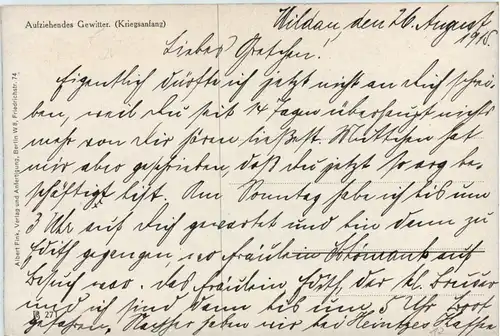 Aufziehendes Gewitter. (Kriegsanfang)
Wildau, den 26. August
1915.
Liebes Gretchen!
Eigentlich dürfte ich jetzt nicht an dich schrei-
ben, weil du seit 14 Tagen überhaupt nichts
mehr von dir hören ließest. Muttchen hat
mir aber geschrieben, daß du jetzt so arg be-
schäftigt bist. Am Sonntag habe ich bis um
3 Uhr auf dich gewartet und bin dann zu
Edith gegangen, wo Fräulein auf
Besuch war. Das Fräulein, Edith, der kl. Bruder
und ich sind dann bis um 5 Uhr Boot
gefahren, Nachher gehen wir bei
Albert Fink, Verlag und Anfertigung, Berlin W8, Friedrichstr. 74
27